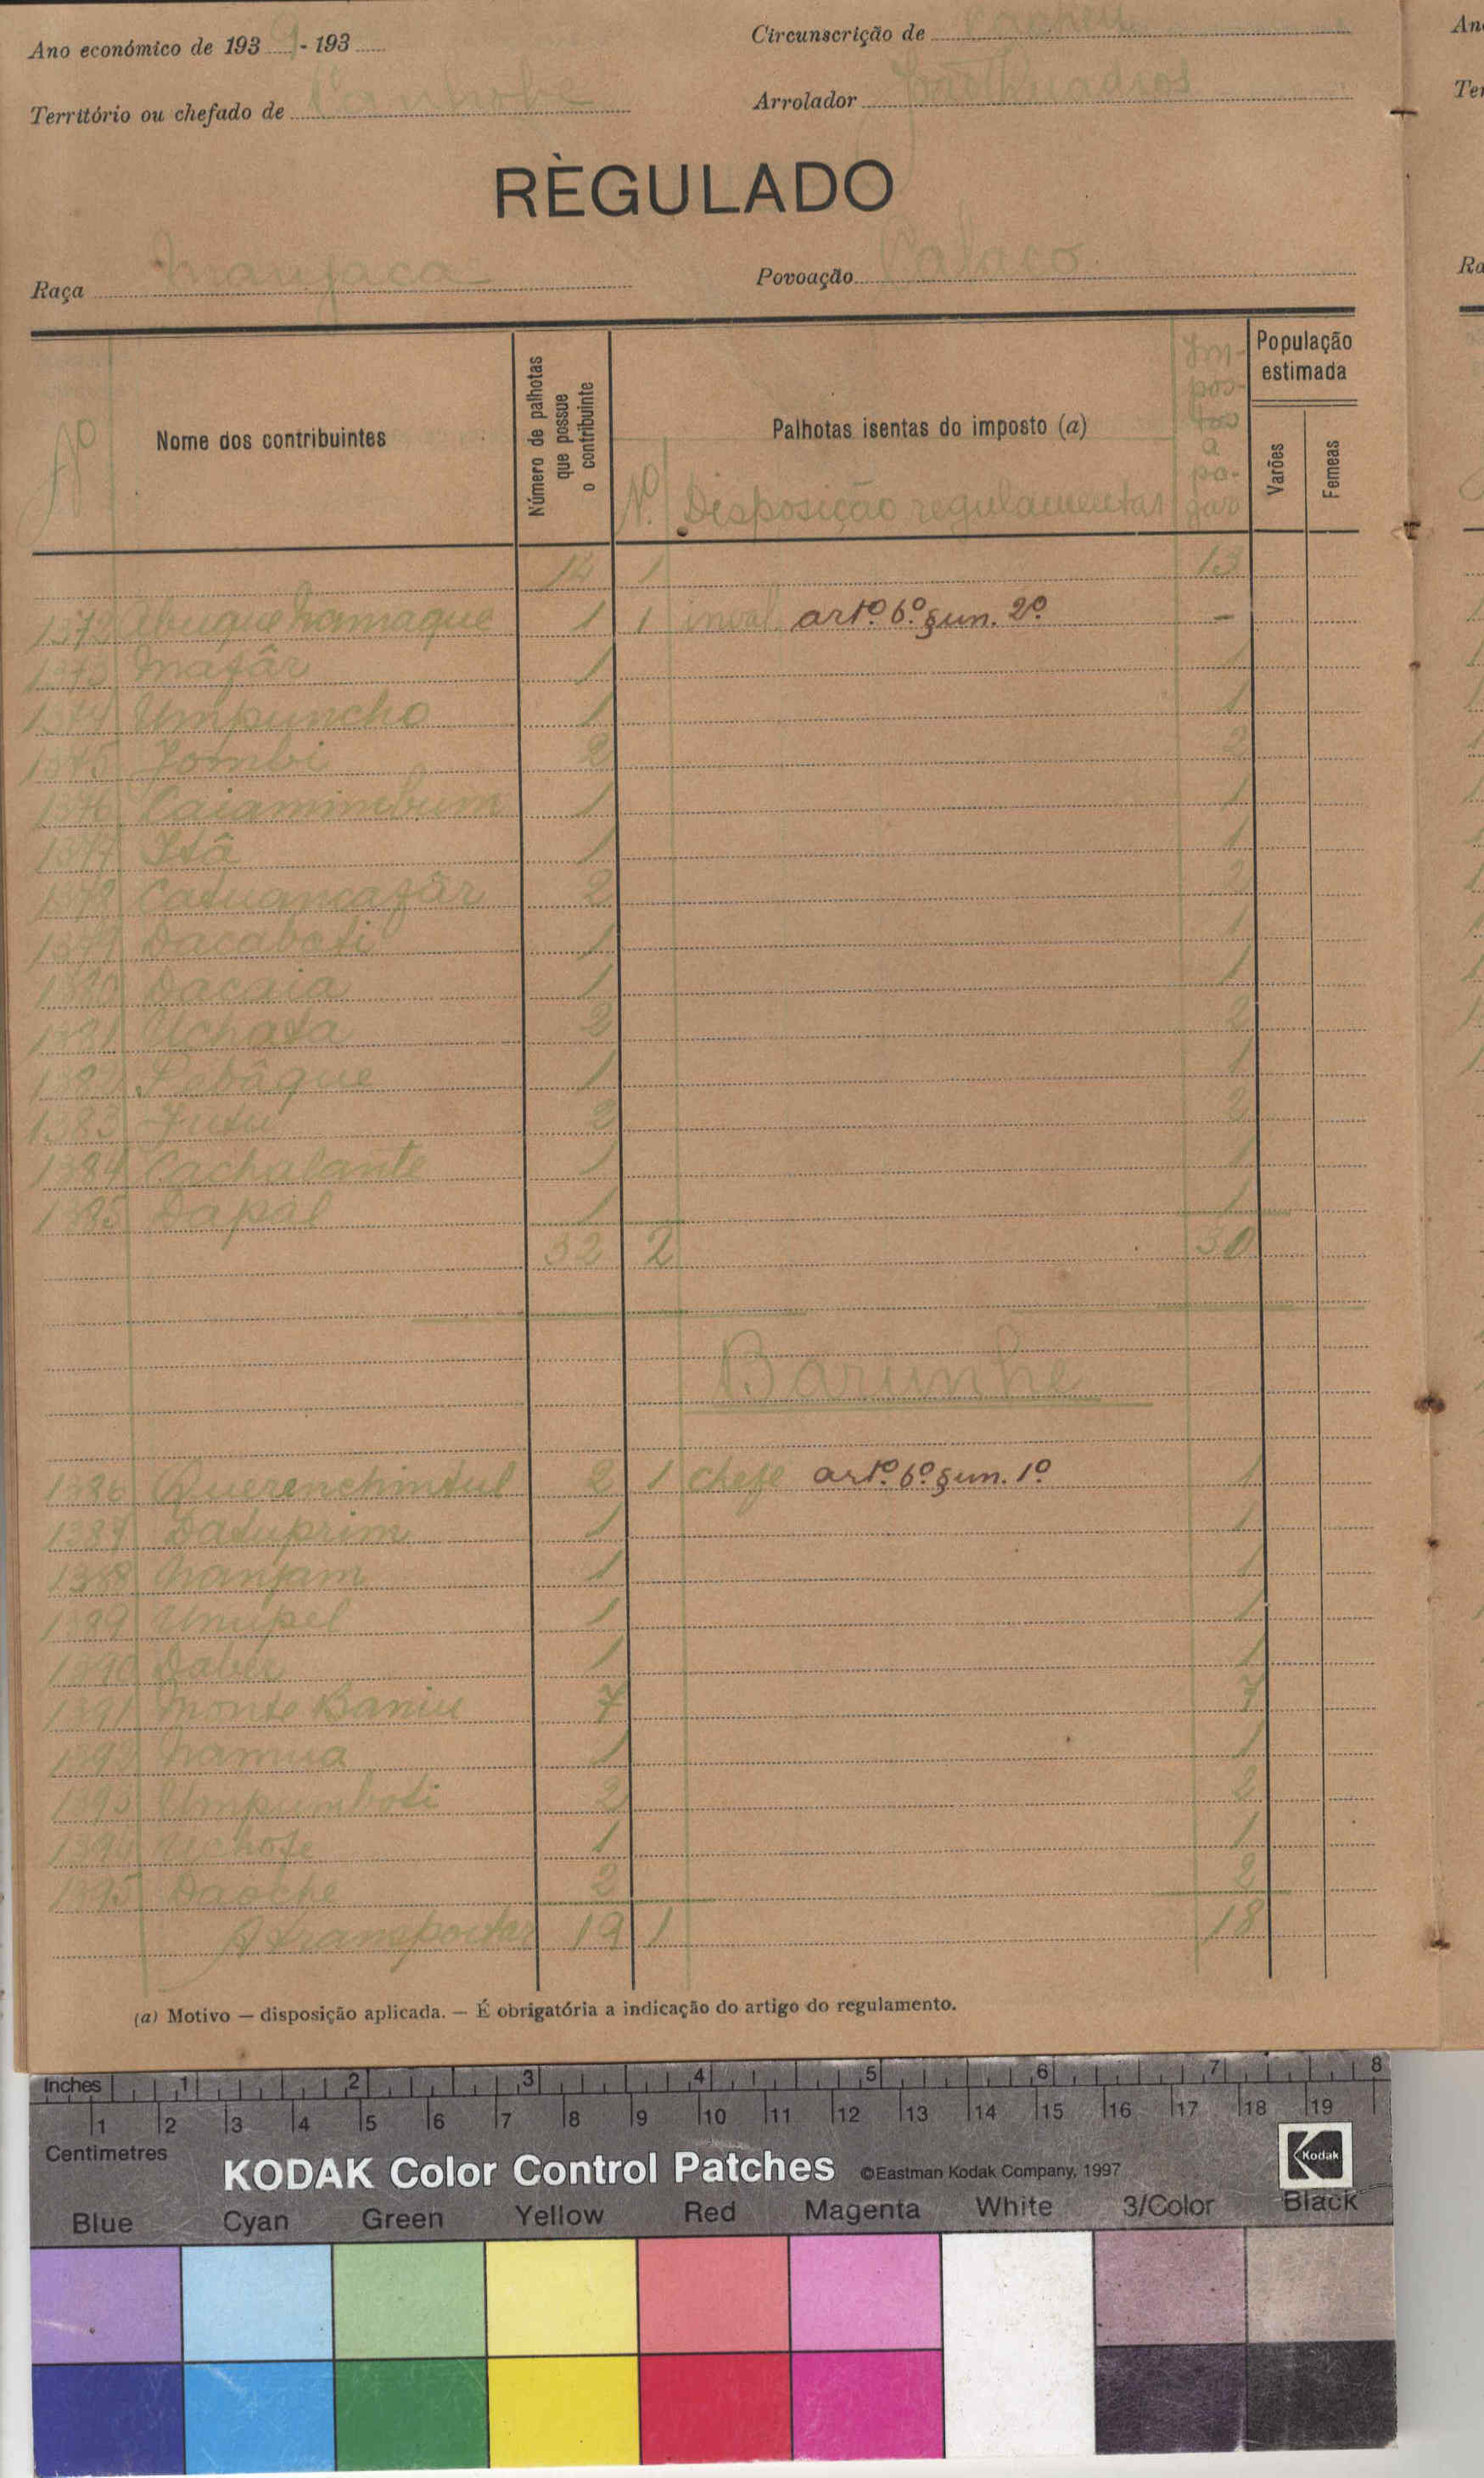 Ano económico de 1939-193
Circunscrição de
Território ou chefado de Canhobe
Arrolador
RÈGULADO
Raça Manjaca
Povoação
Nº
Nome dos contribuintes
Número de palhotas que possue o contribuinte
Palhotas isentas do imposto (a)
Nº. Disposição regulamentar
Im-
pos-
tos
a
pa-
gar
População estimada
Varões
Femeas
14 1 13
1372 1 1 inval. artº. 6º. § un. 2º -
1373 Mafâr 1 1
1374 Umpuncho 1 1
1375 Jombi 2 2
1376 Caiamimbum 1 1
1377 Itâ 1 1
1378 Catuancafâr 2 2
1379 Dacaboti 1 1
1380 Dacaia 1 1
1381 Uchata 2 2
1382 Pebâque 1 1
1383 Jutu 2 2
1384 Cachalante 1 1
1385 Dapal 1 1
32 2 30
Barunhe
1386 Querenchintul 2 1 chefe artº. 6º. § un. 1º 1
1387 Datuprim 1 1
1388 Nanjam 1 1
1389 Umpel 1 1
1390 1 1
1391 Monte Baniu 7 7
1392 Namua 1 1
1393 Umpumboti 2 2
1394 Uchofe 1 1
1395 Daoche 2 2
A transportar 19 1 18
(a) Motivo — disposição aplicada. — É obrigatória a indicação do artigo do regulamento.
Inches 1 2 3 4 5 6 7 8
1 2 3 4 5 6 7 8 9 10 11 12 13 14 15 16 17 18 19
Centimetres
KODAK Color Control Patches ©Eastman Kodak Company, 1997 Kodak
Blue Cyan Green Yellow Red Magenta White 3/Color Black